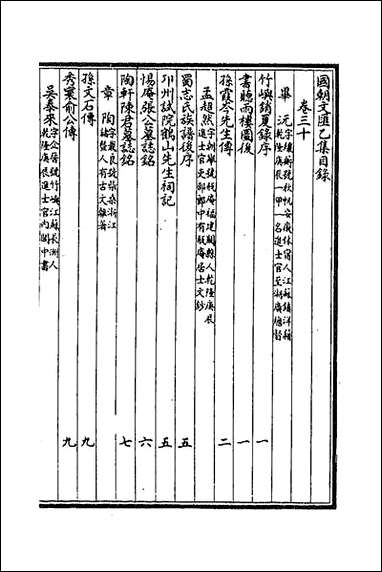 國朝文匯乙集目錄
卷三十
畢 沅 字纕蘅號秋帆安徽休甯人江蘇鎮洋籍
乾隆庚辰一甲一名進士官至湖廣總督
竹嶼銷夏錄序 一
書賜雨樓圖後 一
孫霞岑先生傳 二
孟超然 字朝舉號瓶庵福建閩縣人乾隆庚辰
進士官吏部郎中有瓶庵居士文鈔
蜀志氏族譜後序 五
卭州試院鶴山先生祠記 五
惕庵張公墓誌銘 六
陶軒陳君墓誌銘 七
章 陶 字 良號 浙江
諸暨人有古文 著
孫文石傳 九
秀粟俞公傳 九
吳泰來 字企晉號竹嶼江蘇長洲人
乾隆庚辰進士官內閣中書